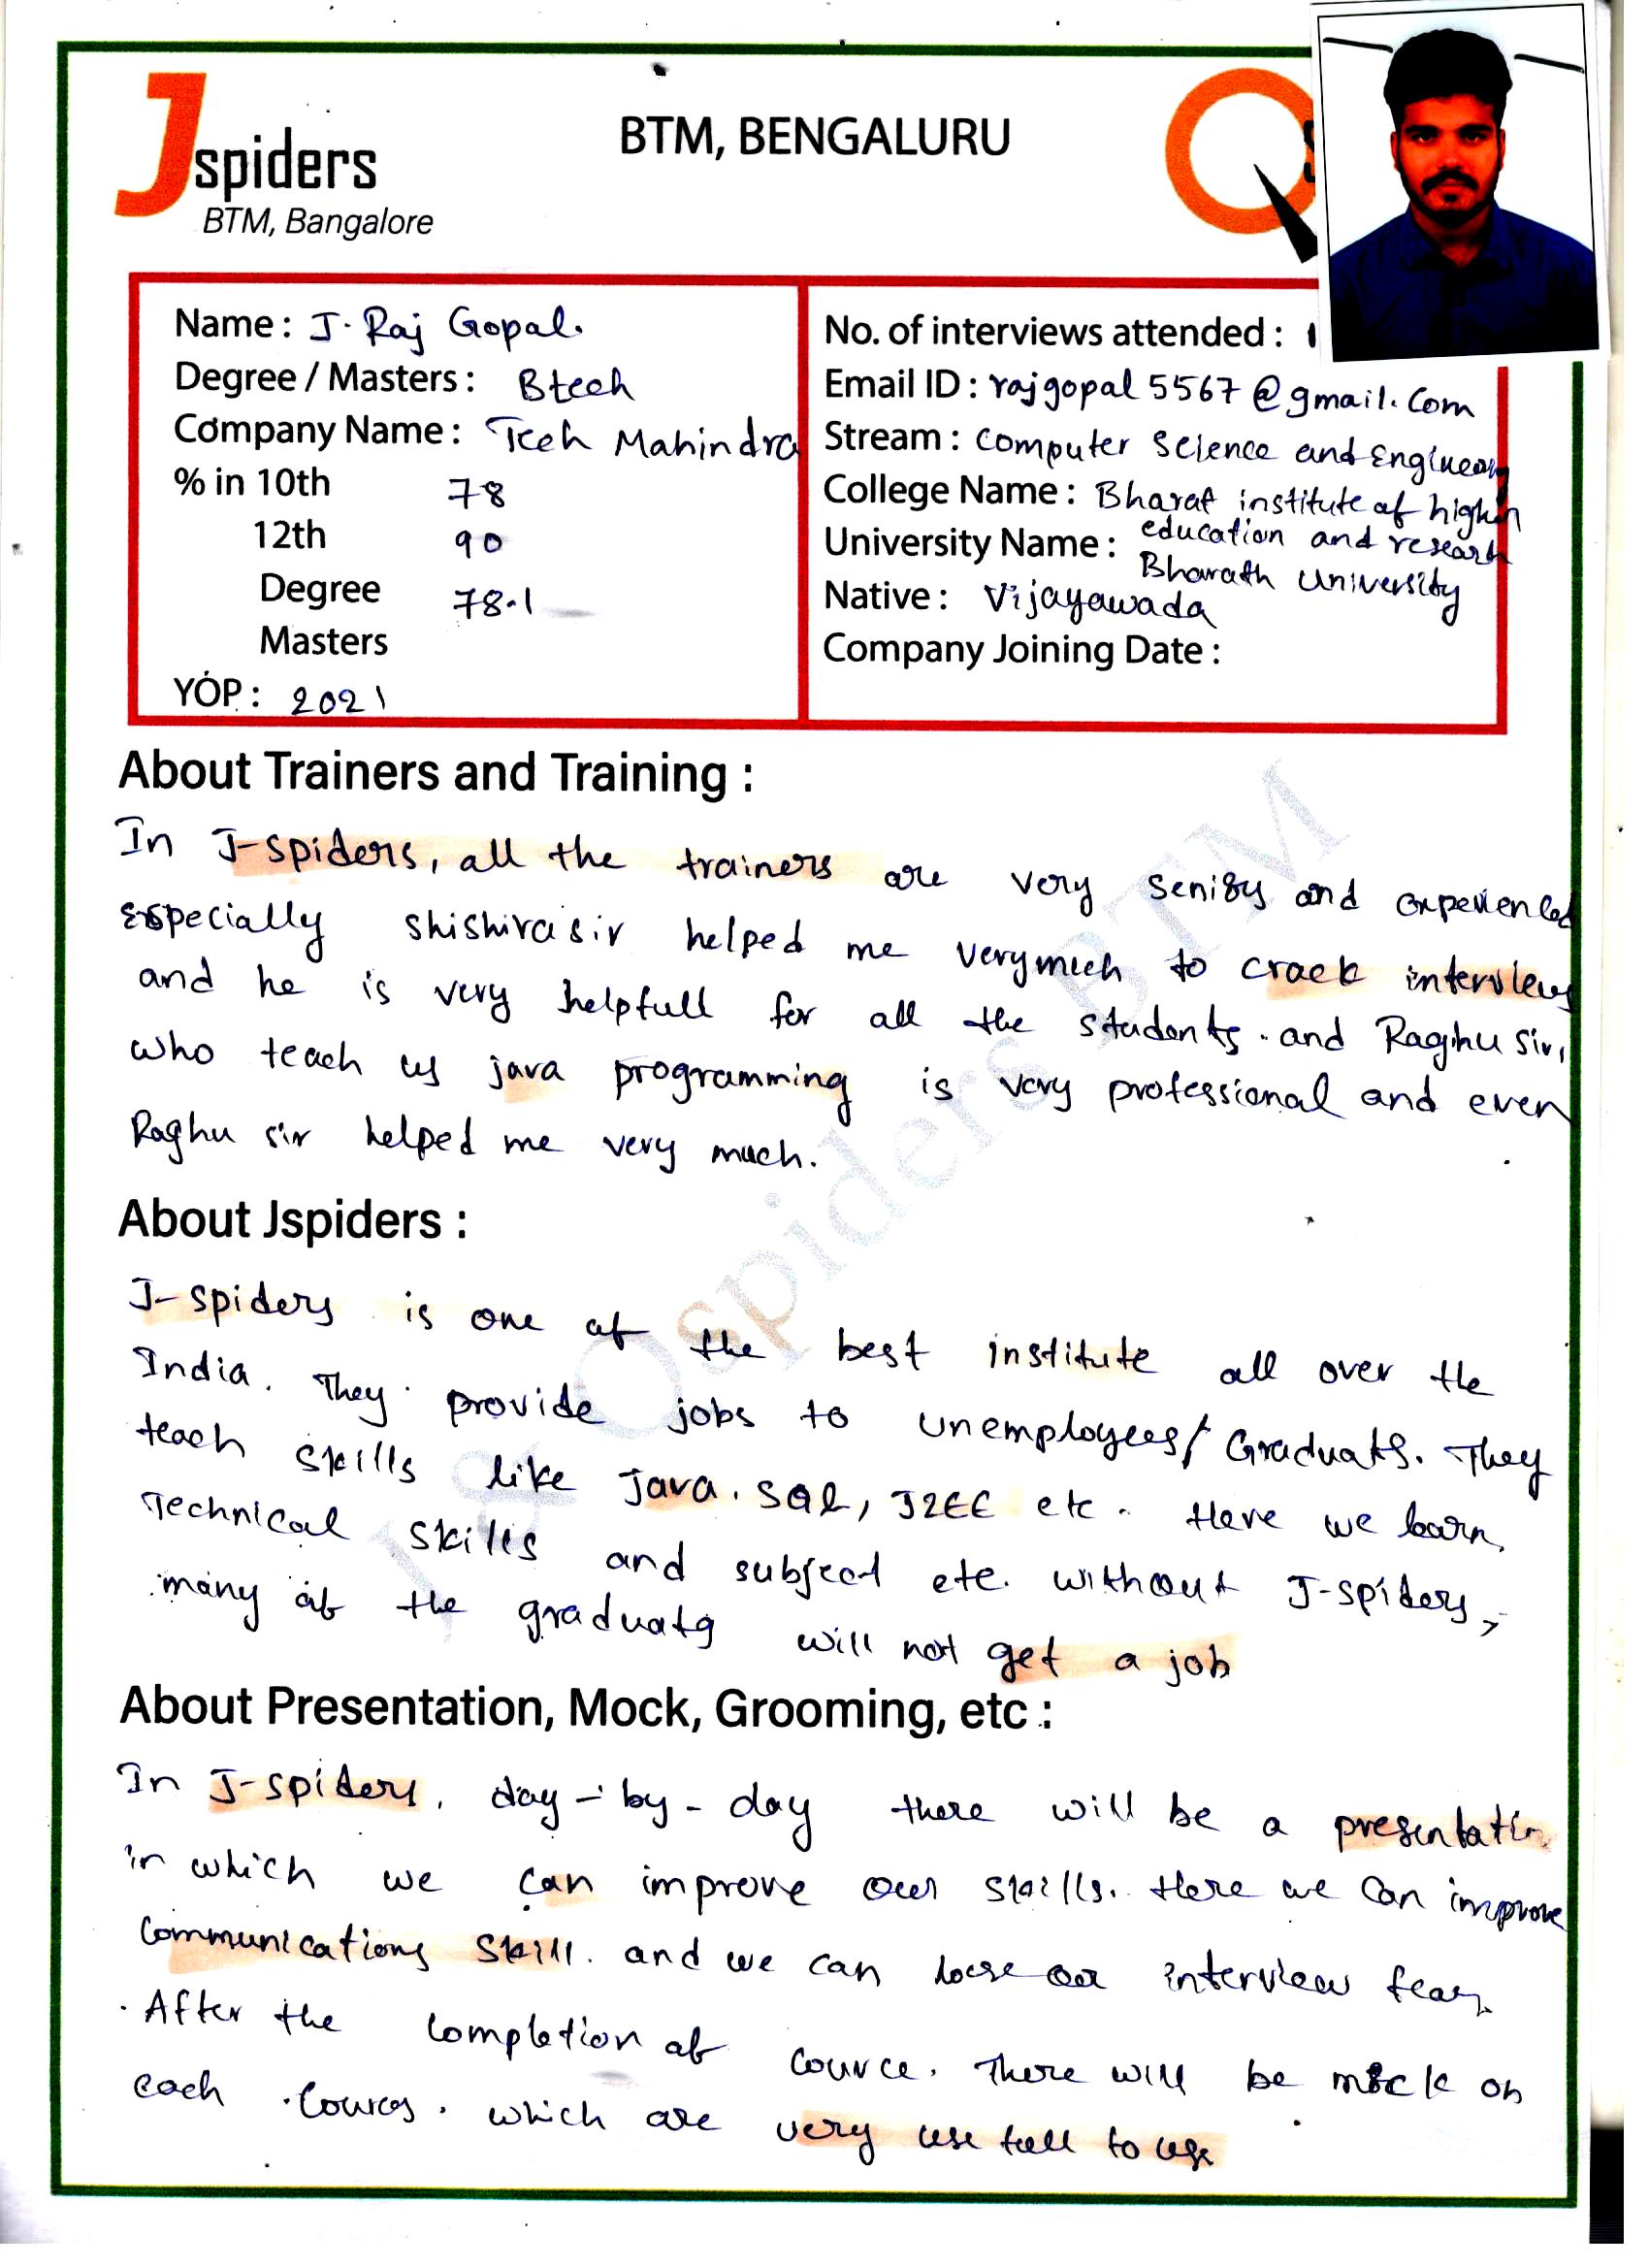 Jspiders
BTM, Bangalore
BTM, BENGALURU
Name : J. Raj Gopal.
Degree / Masters : Btech
Company Name : Tech Mahindra
% in 10th 78
12th 90
Degree 78.1
Masters
YOP : 2021
No. of interviews attended : 1
Email ID : rajgopal5567@gmail.com
Stream : Computer Science and Engineering
College Name : Bharat institute of higher
education and research
University Name : Bharath University
Native : Vijayawada
Company Joining Date :
About Trainers and Training :
In J-spiders, all the trainers are very and experienced
Especially shishira sir helped me verymuch to crack interviews
and he is very helpfull for all the students. and Raghu sir,
who teach us java programming is very professional and even
Raghu sir helped me very much.
About Jspiders :
J-spiders is one of the best institute all over the
India. They provide jobs to unemployees/ Graduats. They
teach skills like Java, SQL, J2EE etc. Here we learn,
Technical skills and subject etc. without J-spiders,
many of the graduats will not get a job
About Presentation, Mock, Grooming, etc :
In J-spiders, day-by-day there will be a presentation
in which we can improve our skills. Here we can improve
Communications skill. and we can loose our interview fear.
After the completion of cource. There will be mock on
each cources. which are very use full to us
Jspiders BTM